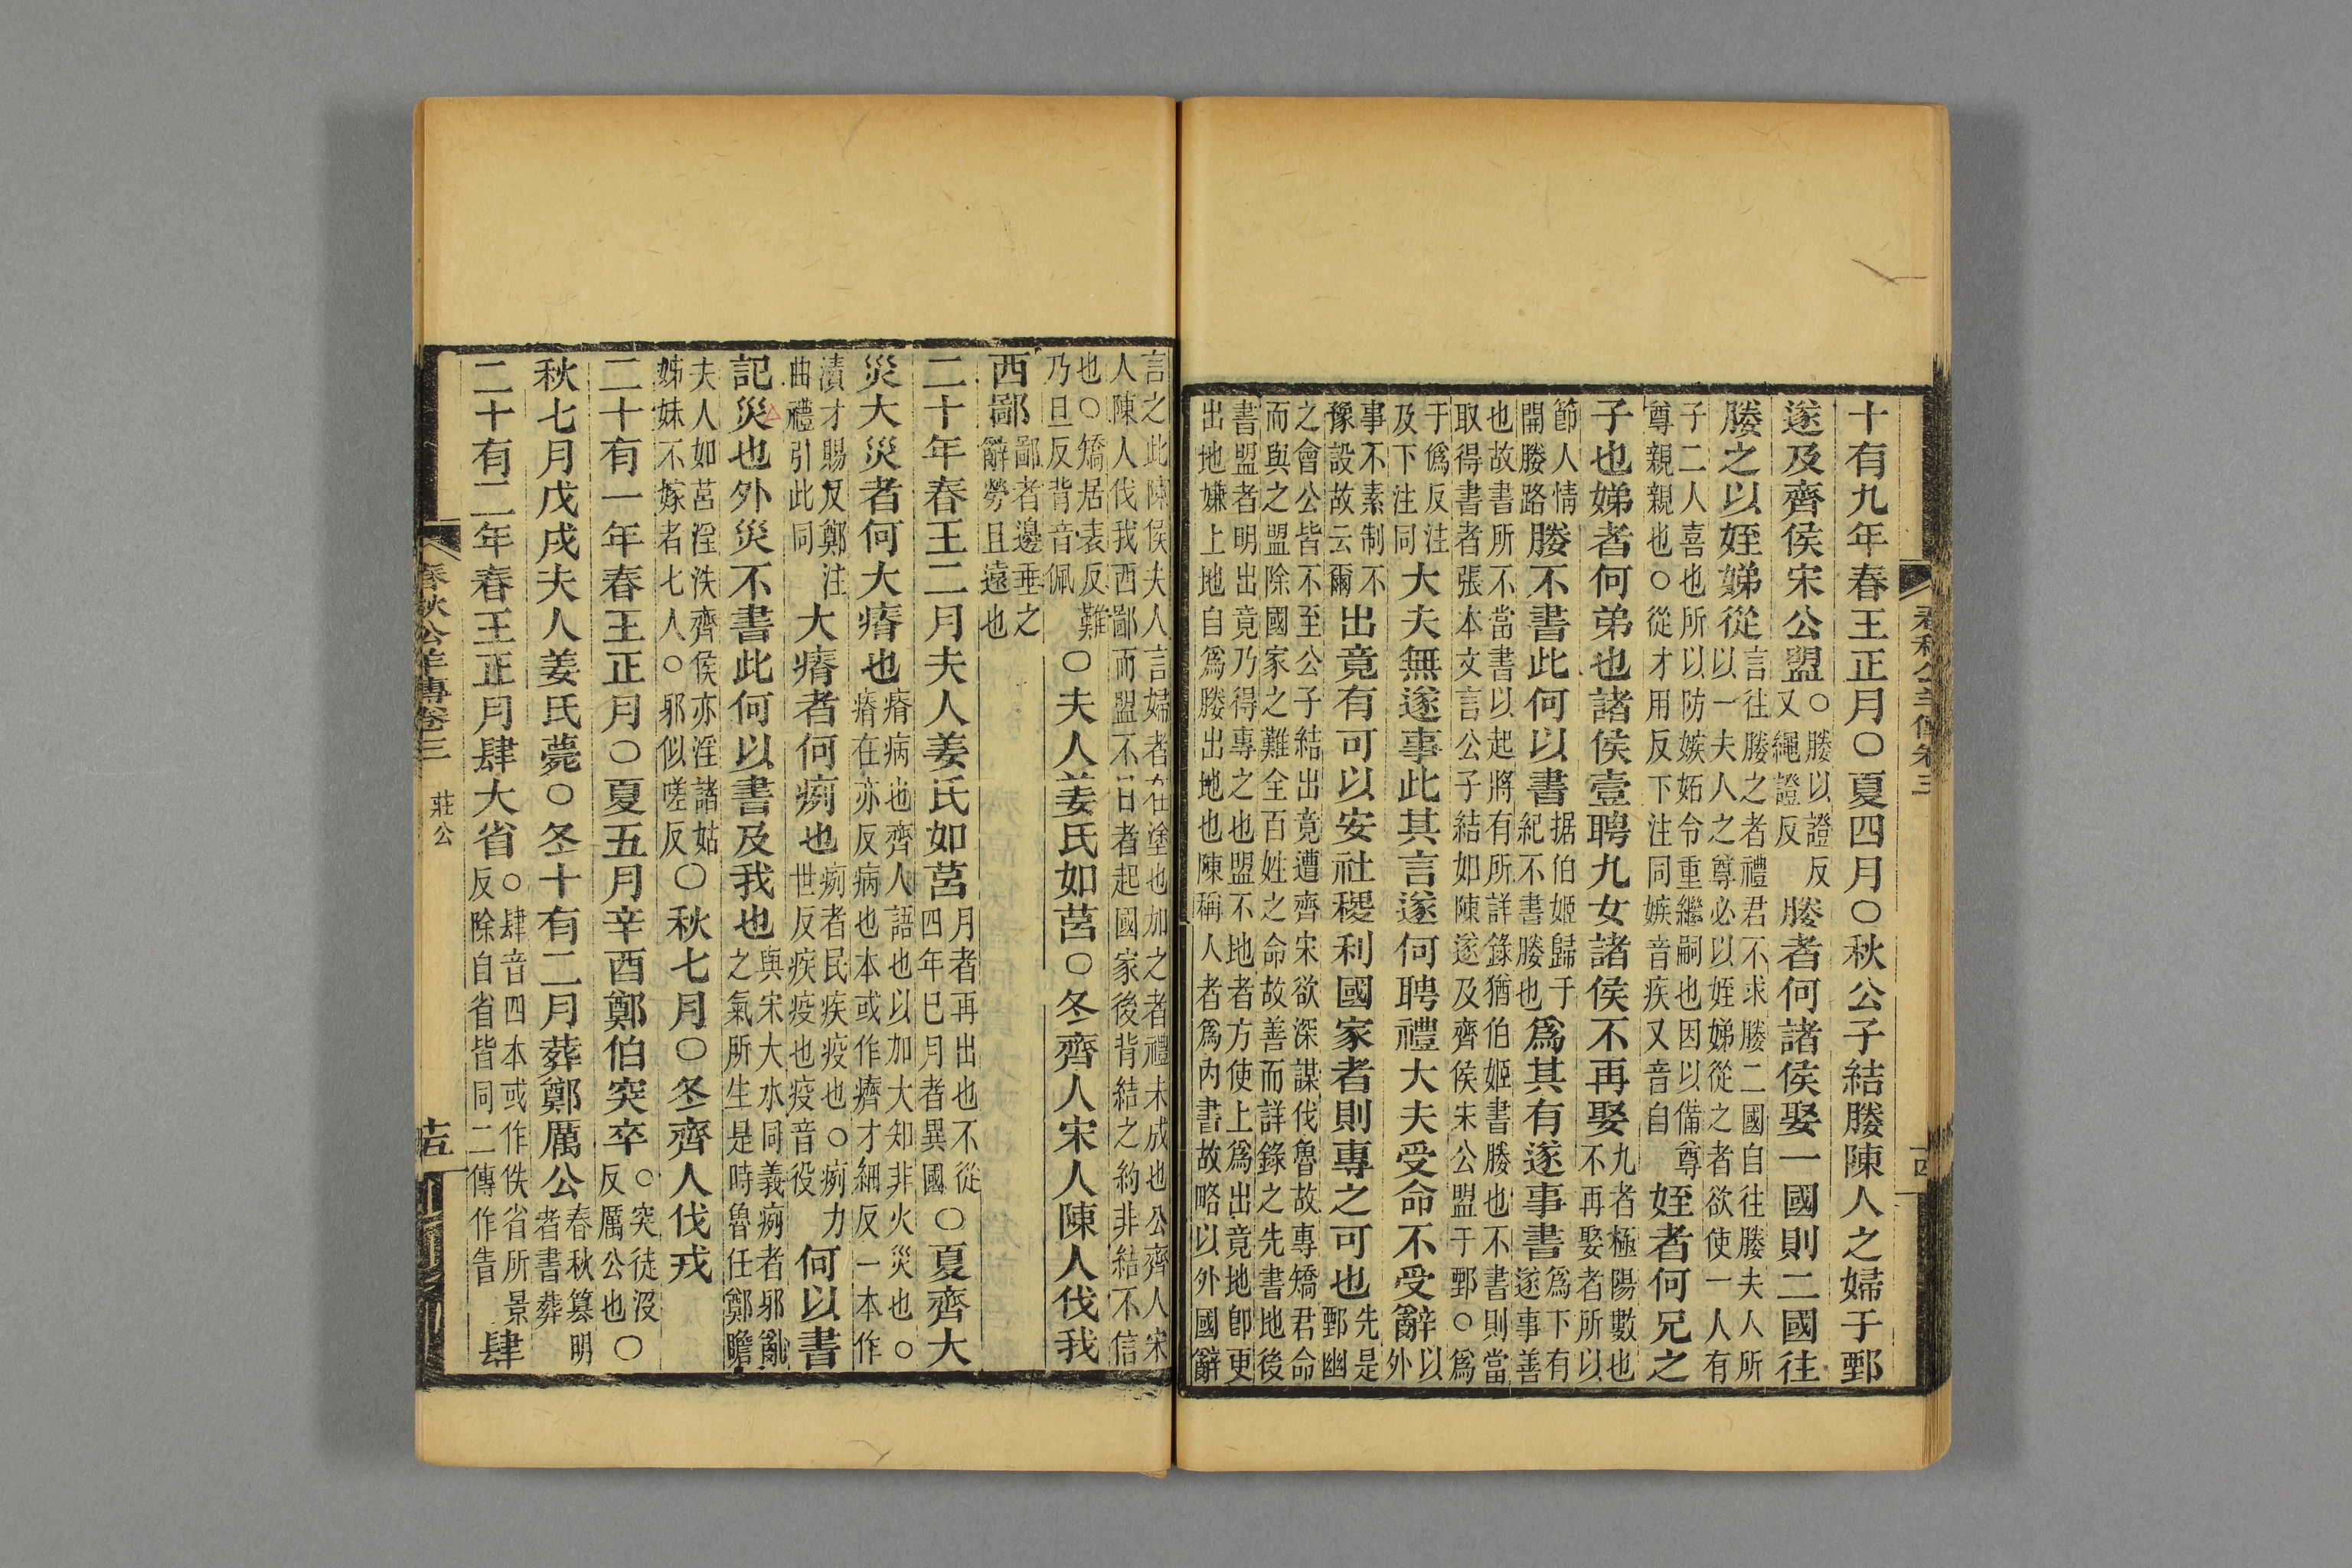 十有九年春王正月〇夏四月〇秋公子結媵陳人之婦于鄄
遂及齊侯宋公盟〇媵以證反又繩證反媵者何諸侯娶一國則二國往
媵之以姪娣從言往媵之者禮君不求媵二國自往媵夫人所以一夫人之尊必以姪娣從之者欲使一人有
子二人喜也所以防嫉妬令重繼嗣也因以備尊尊親親也〇從才用反下注同嫉音疾又音自姪者何兄之
子也娣者何弟也諸侯壹聘九女諸侯不再娶九者極陽數也不再娶者所以
節人情開媵路媵不書此何以書据伯姬歸于紀不書媵也爲其有遂事書爲下有遂事善
也故書所不當書以起將有所詳錄猶伯姬書媵也不書則當取得書者張本文言公子結如陳遂及齊侯宋公盟于鄄〇爲
于僞反注及下注同大夫無遂事此其言遂何聘禮大夫受命不受辭以外
事不素制不豫設故云爾出竟有可以安社稷利國家者則專之可也先是鄄幽
之會公皆不至公子結出竟遭齊宋欲深謀伐魯故專矯君命而與之盟除國家之難全百姓之命故善而詳錄之先書地後
書盟者明出竟乃得專之也盟不地者方使上爲出竟地卽更出地嫌上地自爲媵出地也陳稱人者爲內書故略以外國辭
春秋公羊傳卷三
十四
言之此陳侯夫人言婦者在塗也加之者禮未成也公齊人宋人陳人伐我西鄙而盟不日者起國家後背結之約非結不信
也〇矯居表反難乃旦反背音佩〇夫人姜氏如莒〇冬齊人宋人陳人伐我
西鄙鄙者邊垂之辭勞且遠也
二十年春王二月夫人姜氏如莒月者再出也不從四年巳月者異國〇夏齊大
災大災者何大瘠也瘠病也齊人語也以加大知非火災也〇瘠在亦反病也本或作癠才細反一本作
漬才賜反鄭注曲禮引此同大瘠者何㾐也㾐者民疾疫也〇㾐力世反疾疫也疫音役何以書
記災也外災不書此何以書及我也與宋大水同義㾐者邪亂之氣所生是時魯任鄭瞻
夫人如莒淫泆齊侯亦淫諸姑姊妹不嫁者七人〇邪似嗟反〇秋七月〇冬齊人伐戎
二十有一年春王正月〇夏五月辛酉鄭伯突卒〇突徒沒反厲公也〇
秋七月戊戌夫人姜氏薨〇冬十有二月葬鄭厲公春秋篡明者書葬
二十有二年春王正月肆大省〇肆音四本或作佚省所景反除自省皆同二傳作眚肆
春秋公羊傳卷三
莊公
十五